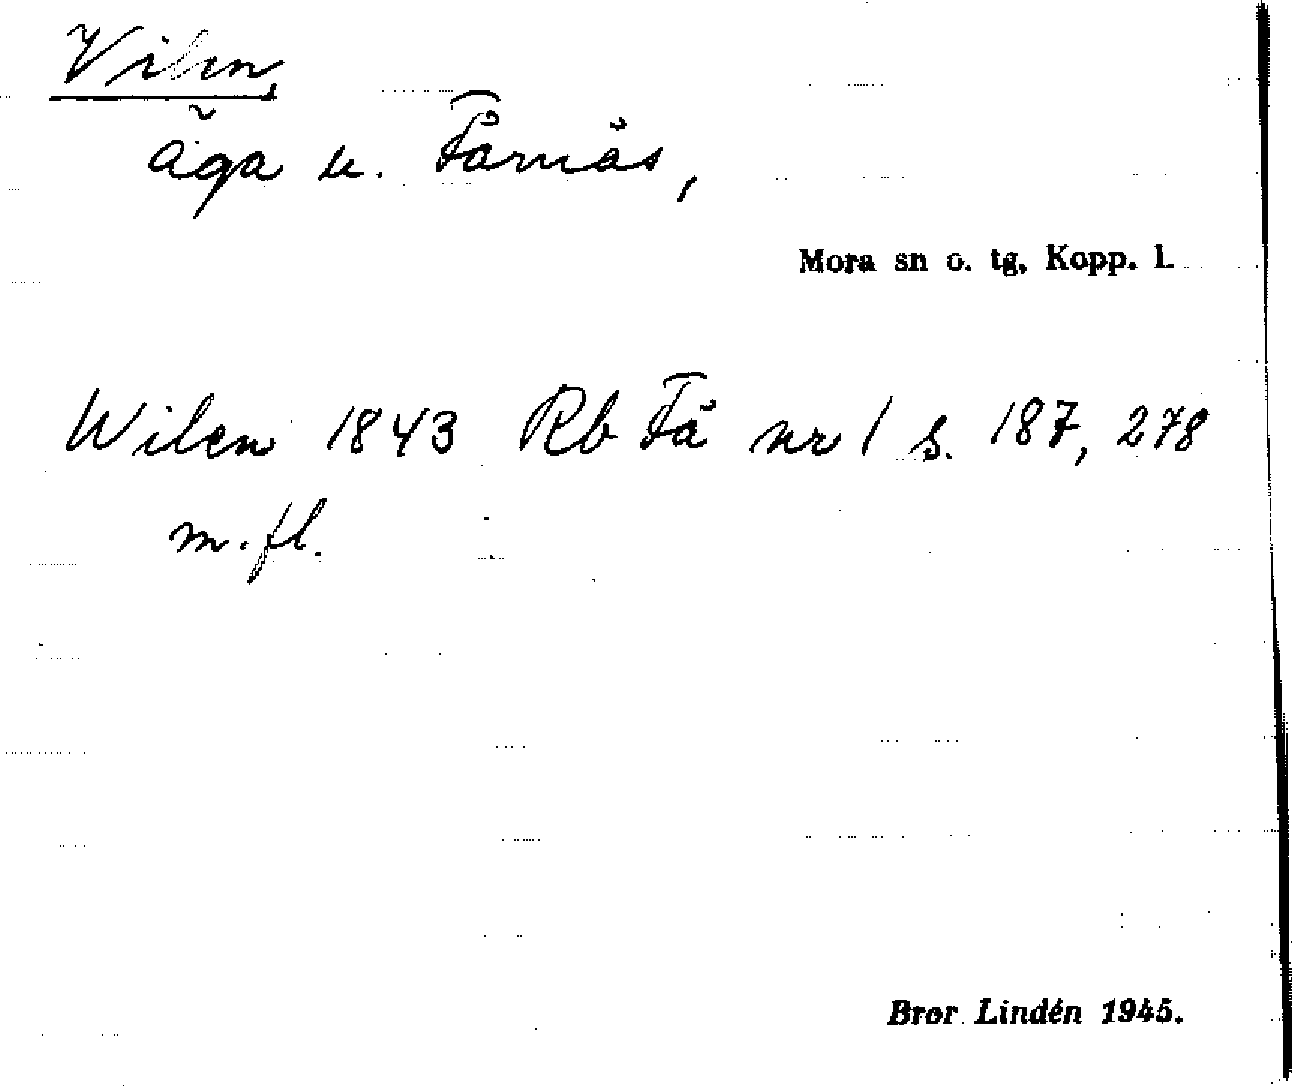 Vilen,
äga u. Färnäs,
Mora sn o. tg, Kopp. l.
Wilen 1843 Rb Fä nr 1 s. 187, 278
m. fl.
Bror Lindén 1945.